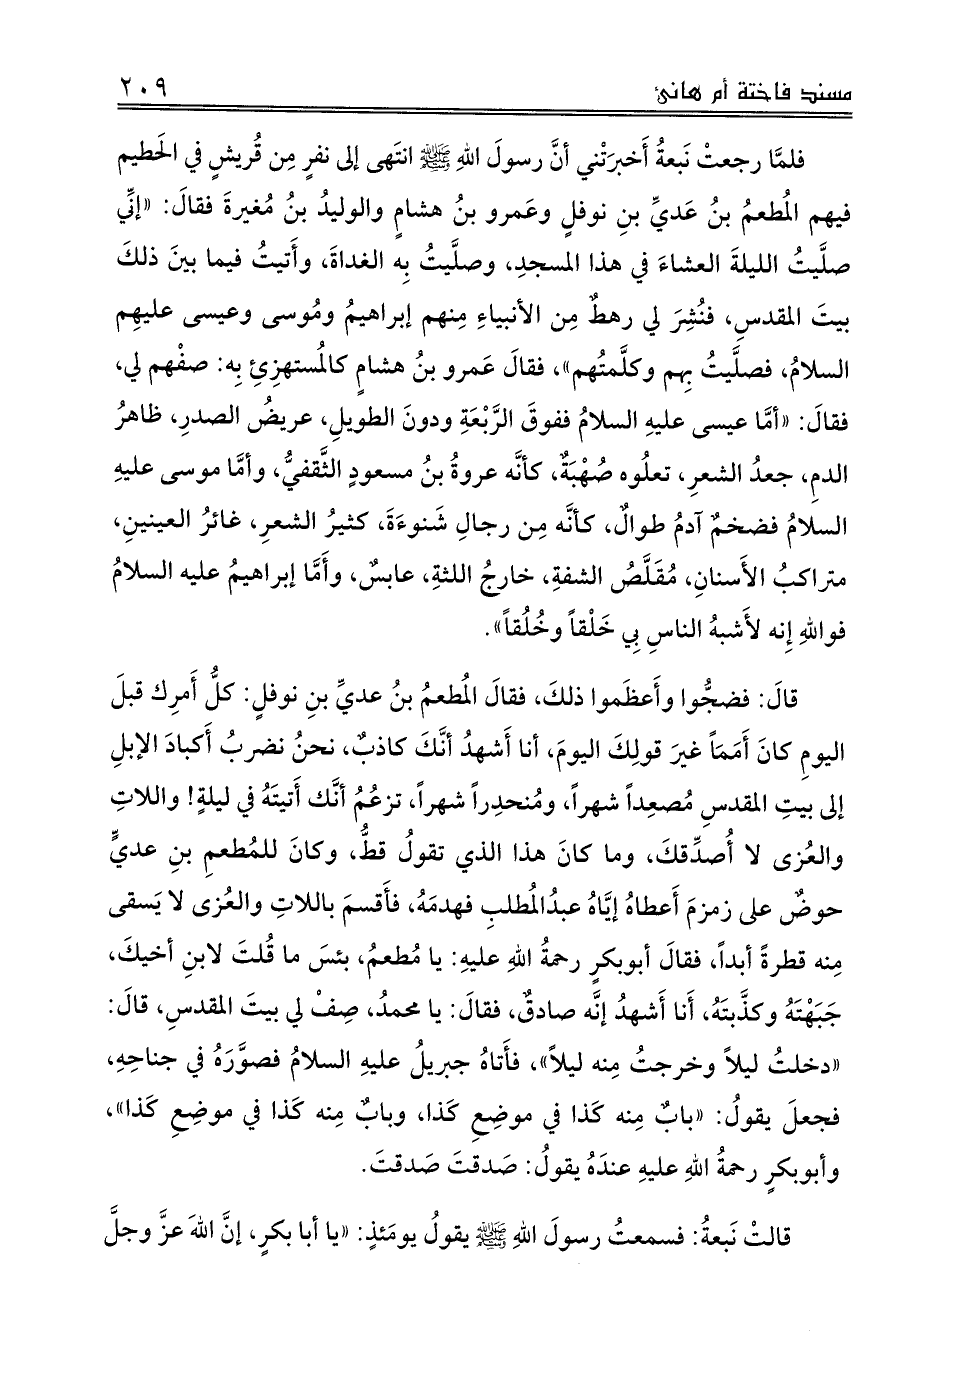 مسند فاختة أم هانئ ٢٠٩
فلمَّا رجعتْ نَبعةُ أَخبرَتْني أنَّ رسولَ اللهِ ﷺ انتَهى إلى نفرٍ مِن قُريشٍ في الحَطيمِ
فيهم المُطعمُ بنُ عَديِّ بنِ نوفلٍ وعَمرو بنُ هشامٍ والوليدُ بنُ مُغيرةَ فقالَ: «إنِّي
صلَّيتُ الليلةَ العشاءَ في هذا المسجدِ، وصلَّيتُ به الغداةَ، وأَتيتُ فيما بينَ ذلكَ
بيتَ المقدسِ، فنُشِرَ لي رهطٌ مِن الأنبياءِ مِنهم إبراهيمُ ومُوسى وعيسى عليهِم
السلامُ، فصلَّيتُ بِهم وكلَّمتُهم»، فقالَ عَمرو بنُ هشامٍ كالمُستهزِئِ بِه: صفْهم لي،
فقالَ: «أمَّا عيسى عليهِ السلامُ ففوقَ الرَّبْعَةِ ودونَ الطويلِ، عريضُ الصدرِ، ظاهرُ
الدمِ، جعدُ الشعرِ، تعلُوه صُهْبَةٌ، كأنَّه عروةُ بنُ مسعودٍ الثَّقفيُّ، وأمَّا موسى عليهِ
السلامُ فضخمٌ آدمُ طوالٌ، كأنَّه مِن رجالِ شَنوءَةَ، كثيرُ الشعرِ، غائرُ العينينِ،
متراكبُ الأسنانِ، مُقَلَّصُ الشفةِ، خارجُ اللثةِ، عابسٌ، وأَمَّا إبراهيمُ عليه السلامُ
فواللهِ إِنه لأَشبهُ الناسِ بِي خَلْقاً وخُلُقاً».
قالَ: فضجُّوا وأَعظَموا ذلكَ، فقالَ المُطعمُ بنُ عديِّ بنِ نوفلٍ: كلُّ أَمرِك قبلَ
اليومِ كانَ أَمَماً غيرَ قولِكَ اليومَ، أنا أَشهدُ أنَّكَ كاذبٌ، نحنُ نضربُ أَكبادَ الإبلِ
إلى بيتِ المقدسِ مُصعِداً شهراً، ومُنحدِراً شهراً، تزعُمُ أنَّك أَتيتَهُ في ليلةٍ! واللاتِ
والعُزى لا أُصدِّقكَ، وما كانَ هذا الذي تقولُ قطُّ، وكانَ للمُطعمِ بنِ عديٍّ
حوضٌ على زمزمَ أَعطاهُ إيَّاهُ عبدُالمُطلبِ فهدمَهُ، فأَقسمَ باللاتِ والعُزى لا يَسقى
مِنه قطرةً أبداً، فقالَ أبوبكرٍ رحمةُ اللهِ عليهِ: يا مُطعمُ، بئسَ ما قُلتَ لابنِ أخيكَ،
جَبَهْتَهُ وكذَّبتَهُ، أَنا أَشهدُ إنَّه صادقٌ، فقالَ: يا محمدُ، صِفْ لي بيتَ المقدسِ، قالَ:
«دخلتُ ليلاً وخرجتُ مِنه ليلاً»، فأَتاهُ جبريلُ عليهِ السلامُ فصوَّرَهُ في جناحِهِ،
فجعلَ يقولُ: «بابٌ مِنه كَذا في موضِعِ كَذا، وبابٌ مِنه كَذا في موضِعِ كَذا»،
وأبوبكرٍ رحمةُ اللهِ عليهِ عندَهُ يقولُ: صَدقتَ صَدقتَ.
قالتْ نَبعةُ: فسمعتُ رسولَ اللهِ ﷺ يقولُ يومَئذٍ: «يا أبا بكرٍ، إنَّ اللهَ عزَّ وجلَّ